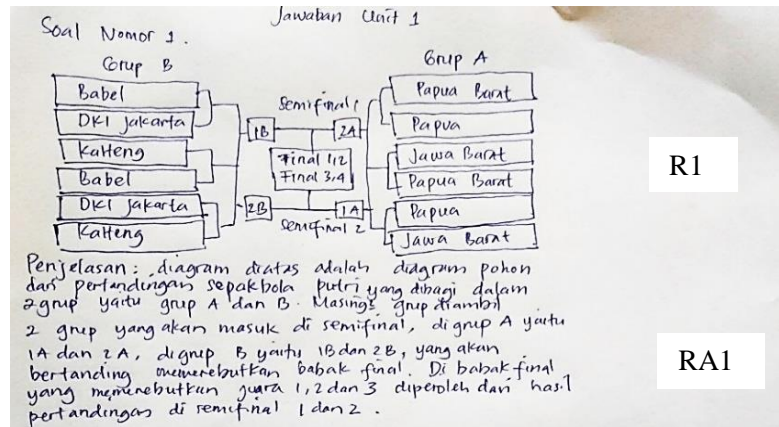 Jawaban Unit 1
Soal Nomor 1.
Grup B
Grup A
Babel
DKI Jakarta
Kalteng
Babel
DKI Jakarta
Kalteng
1B
2B
Semifinal 1
Final 1,2
Final 3,4
Semifinal 2
2A
1A
Papua Barat
Papua
Jawa Barat
Papua Barat
Papua
Jawa Barat
R1
Penjelasan : diagram diatas adalah diagram pohon
dari pertandingan sepakbola putri yang dibagi dalam
2 grup yaitu grup A dan B. Masing2 grup diambil
2 grup yang akan masuk di semifinal, di grup A yaitu
1A dan 2A, digrup B yaitu 1B dan 2B, yang akan
bertanding memerebutkan babak final. Di babak final
yang memerebutkan juara 1, 2 dan 3 diperoleh dari hasil
pertandingan di semifinal 1 dan 2.
RA1